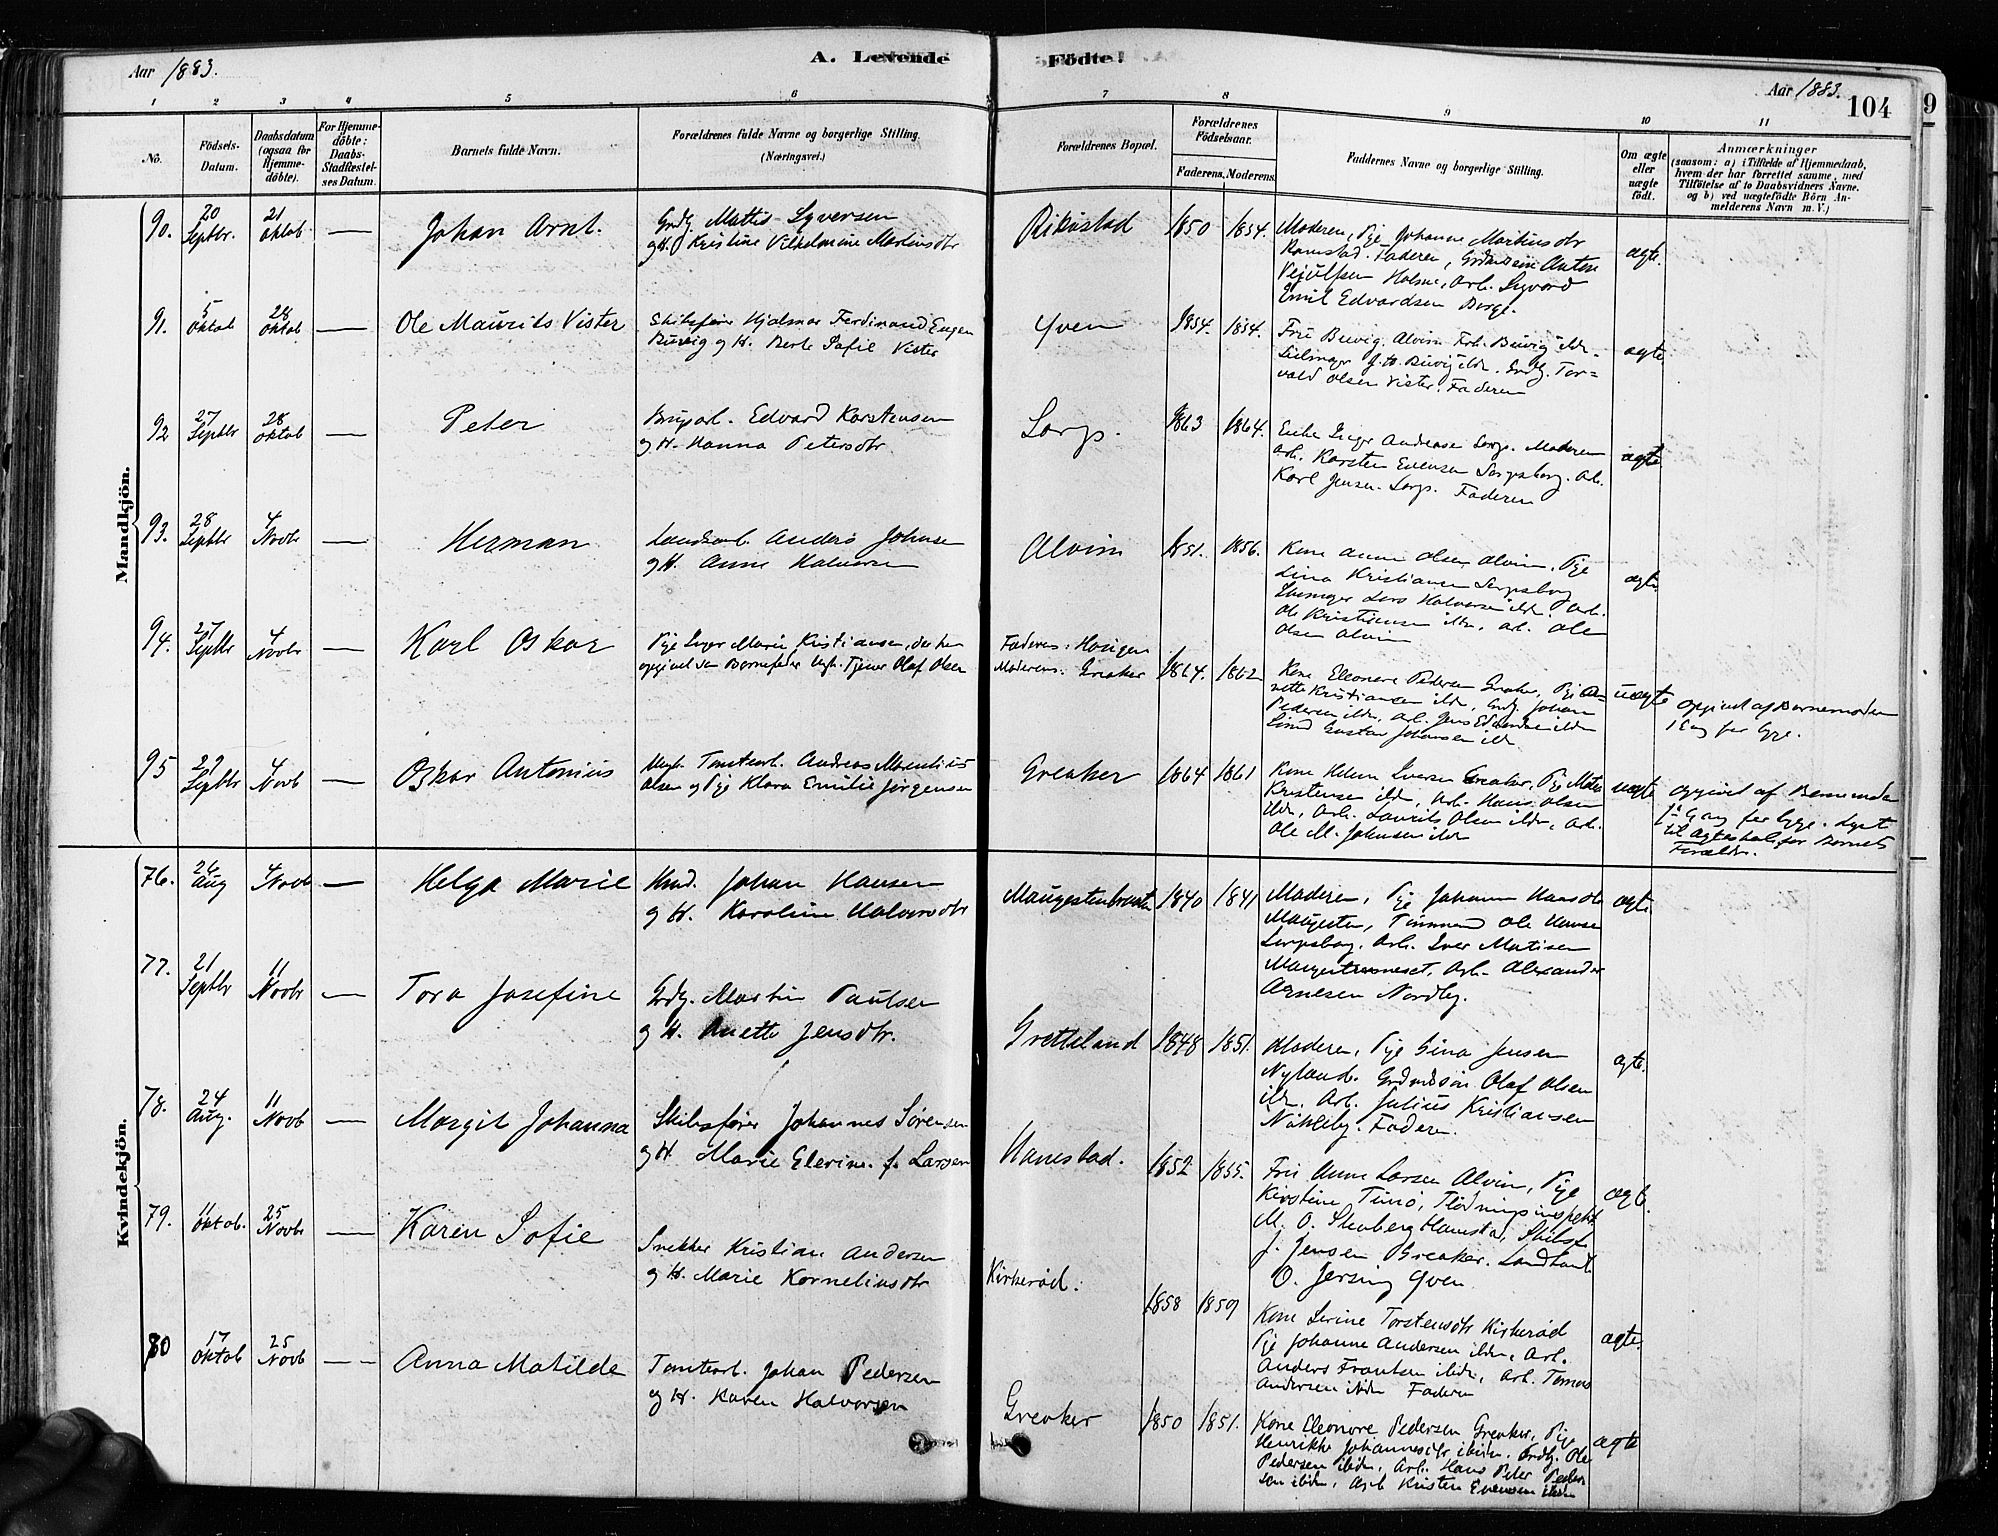 Aar 1883.
A. Levende
Födte.
Aar 1883.
104
9
1 2 3 4 5 6 7 8 9 10 11
No.
Födsels-
Datum.
Daabsdatum
(ogsaa for
Hjemme-
döbte).
For Hjemme-
döbte:
Daabs-
Stadfæstel-
ses Datum.
Barnets fulde Navn.
Forældrenes fulde Navne og borgerlige Stilling.
(Næringsvei.)
Forældrenes Bopæl.
Forældrenes
Födselsaar.
Faderens. Moderens.
Faddernes Navne og borgerlige Stilling.
Om ægte
eller
uægte
födt.
Anmærkninger
(saasom: a) i Tilfælde af Hjemmedaab,
hvem der har forrettet samme, med
Tilföielse af to Daabsvidners Navne,
og b) ved uægtefödte Börn An-
melderens Navn m. V.)
Mandkjön.
90.
20
Septbr.
21
Oktob.
Johan Arnt.
Grdg. Mattis Syversen
og H. Kristine Vilhelmine Martinsdtr
1850
1854.
Moderen, Pige Johanne Martinsdtr
Ramstad. Faderen, Anton
Holme, Arb. Sigvard
Emil Edvardsen Borge.
ægte.
91.
5
Oktob
28
Oktob
—
Ole Maurits Vister
Skibsfører Hjalmar Ferdinand Eugen
og H. Berte Sofie Vister
Yven
1854.
1854.
Alvim
vald Olsen Vister. Faderen
ægte
92
27
Septbr
28
Oktob
—
Peter
Edvard Karstensen
og H. Hanna Petersdtr
Sarp.
1863
1864.
Enke Inger Andrease Sarp. Moderen
Arb. Karsten Evensen Sarpsborg. Arb.
Karl Jensen. Sarp. Faderen
ægte
93.
28
Septbr
4
Novbr
—
Herman
Landarb. Anders Johnsen
og H. Anne Halvorsen
Alvim
1851.
1856.
Kone Anne Olsen Alvim, Pige
Lina Kristiansen Sarpsborg
Lars Halvorsen ildr,
Ole Kristiansen ildr, arb. Ole
Olsen Alvim
ægte
94.
27
Septbr
4
Novbr
—
Karl Oskar
Pige Inger Marie Kristiansen, der har
opgivet som Barnefader Ungk. Tjener Olaf Olsen
Faderens: Haugen
Moderens: Greaker
1864.
1862
Kone Eleonore Pedersen Greaker, Pige An-
nette Kristiansen ildr, Grdg. Johan
Pedersen ildr, arb. Jens Edvardsen ildr
Gustav Johansen ildr
uægte
Opgivet af Barnemoderen
1 Gang før lyge.
95
29
Septbr
4
Novb
—
Oskar Antonius
Ungk. Tomtearb. Andreas Maurentius
Olsen og Pige Klara Emilie Jørgensen
Greaker
1864
1861
Kone Helene Iversen Greaker, Pige
Kristensen ildr, Arb. Hans Olsen
ildr, Arb. Laurits Olsen ildr, Arb.
Ole M. Johnsen ildr
uægte
Opgivet af Barnemoderen
1ste Gang før lyge. Lyst
til Ægteskab før Barnets
Forældre.
Kvindekjön.
76.
26
Aug
4
Novb
—
Helga Marie
Hmd. Johan Hansen
og H. Karoline Halvorsdtr
1840
1841
Moderen, Pige Johanne Hansdtr
Maugesten, Tømmermd Ole Hansen
Sarpsborg. Arb. Iver Matisen
Arb. Alexander
Arnesen Nordby.
ægte
77.
21
Septbr
11
Novbr
—
Tora Josefine
Grdg. Martin Paulsen
og H. Anette Jensdtr.
Gretteland
1848
1851.
Moderen, Pige Gina Jensen
Nyland. Olaf Olsen
ildr. Arb. Julius Kristiansen
Faderen.
ægte.
78.
24
Aug.
11
Novb
—
Margit Johanna
Skibsfører Johannes Sørensen
og H. Marie Elerine. f. Larsen
Hanestad.
1852
1855.
Fru Anne Larsen Alvim, Pige
Kirstine Tunø, Flødningsinspekt.
M. O. Stenberg Hanestad, Skibsf.
J. Jensen Greaker.
O. Yven
ægt.
79.
11
Oktob.
25
Novbr
—
Karen Sofie
Snekker Kristian Andersen
og H. Marie Korneliusdtr
Kirkerød.
1858
1859
Kone Serine Torstensdtr Kirkerød
Pige Johanne Andersen ildr, Arb.
Anders Frantsen ibidr, Arb. Tomas
Andersen ibidr Faderen
ægte.
80
17
Oktob
25
Novb
—
Anna Matilde
Tomtearb. Johan Pedersen
og H. Karen Halvorsen
Greaker
1850
1851.
Kone Eleonore Pedersen Greaker, Pige
Henrikke Johannesdtr ibidr. Grdg. Ole
Pedersen ibidr, Arb. Hans Peter Peder-
sen ibidr, Arb Kristen Evensen ibidr
ægte